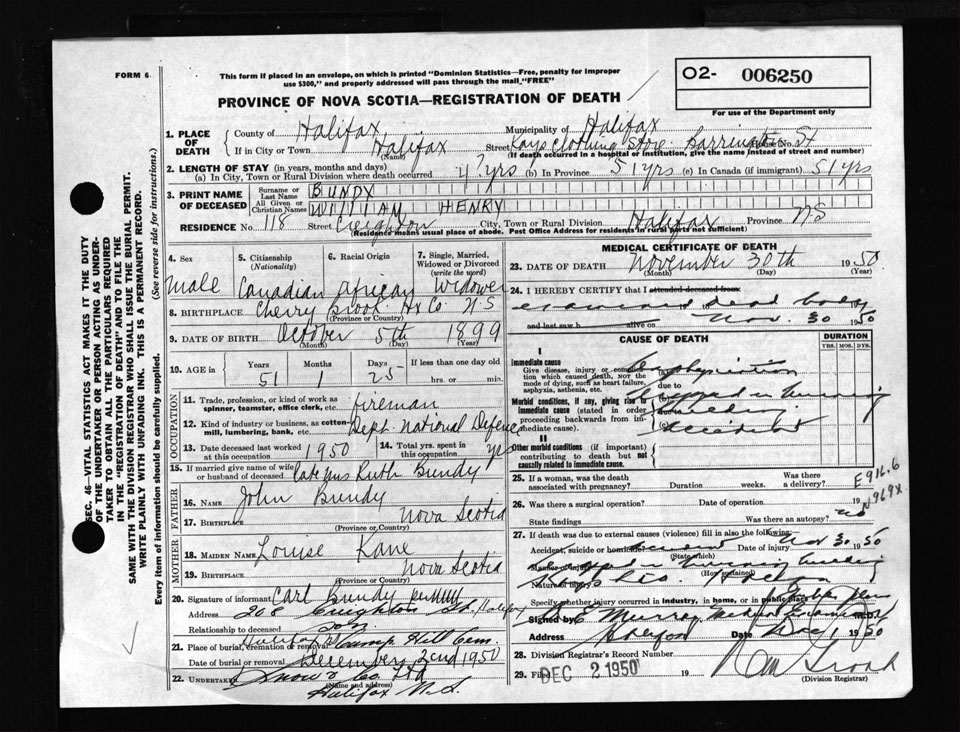 FORM 6
This form if placed in an envelope, on which is printed "Dominion Statistics—Free, penalty for improper
use $300," and properly addressed will pass through the mail "FREE"
PROVINCE OF NOVA SCOTIA—REGISTRATION OF DEATH
02- 006250
For use of the Department only
1. PLACE OF DEATH
County of Halifax Municipality of Halifax
If in City or Town Halifax (Name) Street Kays Clothing Store Barrington St House No.
(If death occurred in a hospital or institution, give the name instead of street and number)
2. LENGTH OF STAY (in years, months and days)
(a) In City, Town or Rural Division where death occurred yrs (b) In Province 51 yrs (c) In Canada (if immigrant) 51 yrs
3. PRINT NAME OF DECEASED
Surname or Last Name BUNDY
All Given or Christian Names WILLIAM HENRY
RESIDENCE No. 118 Street Creighton City, Town or Rural Division Halifax Province NS
(Residence means usual place of abode. Post Office Address for residents in rural parts not sufficient)
4. Sex
Male
5. Citizenship (Nationality)
Canadian
6. Racial Origin
African
7. Single, Married, Widowed or Divorced (write the word)
Widower
8. BIRTHPLACE Cherry Brook Hx Co N.S
(Province or Country)
9. DATE OF BIRTH October 5th 1899
(Month) (Day) (Year)
10. AGE in
Years Months Days If less than one day old
51 1 25 hrs. or min.
OCCUPATION
11. Trade, profession, or kind of work as spinner, teamster, office clerk, etc. fireman
12. Kind of industry or business, as cotton-mill, lumbering, bank, etc. Dept. National Defence
13. Date deceased last worked at this occupation 1950
14. Total yrs. spent in this occupation yrs
15. If married give name of wife or husband of deceased Late Ruth Bundy
FATHER
16. NAME John Bundy
17. BIRTHPLACE Nova Scotia
(Province or Country)
MOTHER
18. MAIDEN NAME Louise Kane
19. BIRTHPLACE Nova Scotia
(Province or Country)
20. Signature of informant Carl Bundy
Address 268 Creighton St. Halifax
Relationship to deceased son
21. Place of burial, cremation or removal Camp Hill Cem.
Date of burial or removal December 2nd 1950
22. UNDERTAKER Snow & Co Ltd
(Name and address)
Halifax N.S.
MEDICAL CERTIFICATE OF DEATH
23. DATE OF DEATH November 30th 1950
(Month) (Day) (Year)
24. I HEREBY CERTIFY that I attended deceased from
examined dead body
and last saw h alive on Nov. 30 1950
CAUSE OF DEATH
DURATION
YRS. MOS. DYS.
I
Immediate cause
Give disease, injury or complication which caused death, NOT the mode of dying, such as heart failure, asphyxia, asthenia, etc.
Asphyxiation
due to
Morbid conditions, if any, giving rise to immediate cause (stated in order proceeding backwards from immediate cause).
Trapped in burning
building
accident
II
Other morbid conditions (if important) contributing to death but not causally related to immediate cause.
25. If a woman, was the death associated with pregnancy? Duration weeks. Was there a delivery?
E916.6
N969X
26. Was there a surgical operation? Date of operation 19
State findings Was there an autopsy? no
27. If death was due to external causes (violence) fill in also the following
Accident, suicide or homicide? Accident Date of injury Nov 30 1950
(State which)
Manner of injury Trapped in burning building
(How sustained)
Nature of injury
Specify whether injury occurred in industry, in home, or in public place
Signed by Murray Medical Examiner M.D.
Address Halifax Date Dec 1 1950
28. Division Registrar's Record Number
29. Filed DEC 2 1950 19
(Division Registrar)
SEC. 46—VITAL STATISTICS ACT MAKES IT THE DUTY
OF THE UNDERTAKER OR PERSON ACTING AS UNDER-
TAKER TO OBTAIN ALL THE PARTICULARS REQUIRED
IN THE "REGISTRATION OF DEATH" AND TO FILE THE
SAME WITH THE DIVISION REGISTRAR WHO SHALL ISSUE THE BURIAL PERMIT.
WRITE PLAINLY WITH UNFADING INK. THIS IS A PERMANENT RECORD.
Every item of information should be carefully supplied. (See reverse side for instructions.)